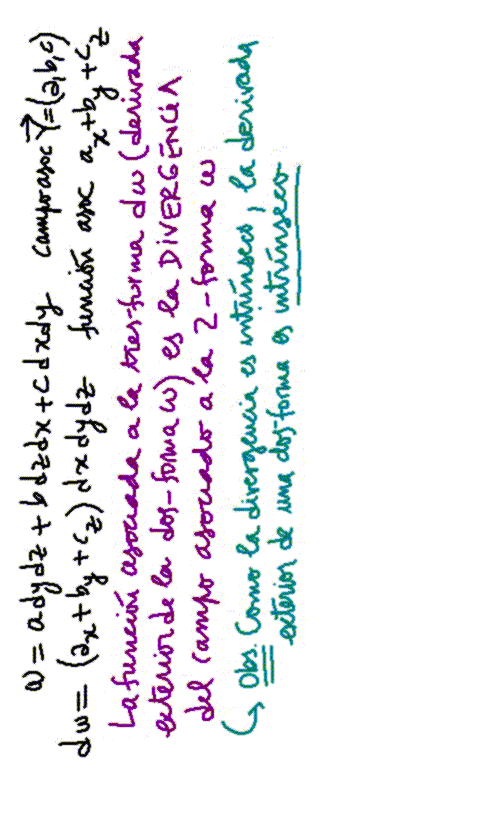 ω = a dy dz + b dz dx + c dx dy campo asoc Y⃗ = (a, b, c)
dω = (a_x + b_y + c_z) dx dy dz función asoc a_x + b_y + c_z
La función asociada a la tres-forma dω (derivada
exterior de la dos-forma ω) es la DIVERGENCIA
del campo asociado a la 2-forma ω
↳ Obs. Como la divergencia es intrínseca, la derivada
exterior de una dos-forma es intrínseco